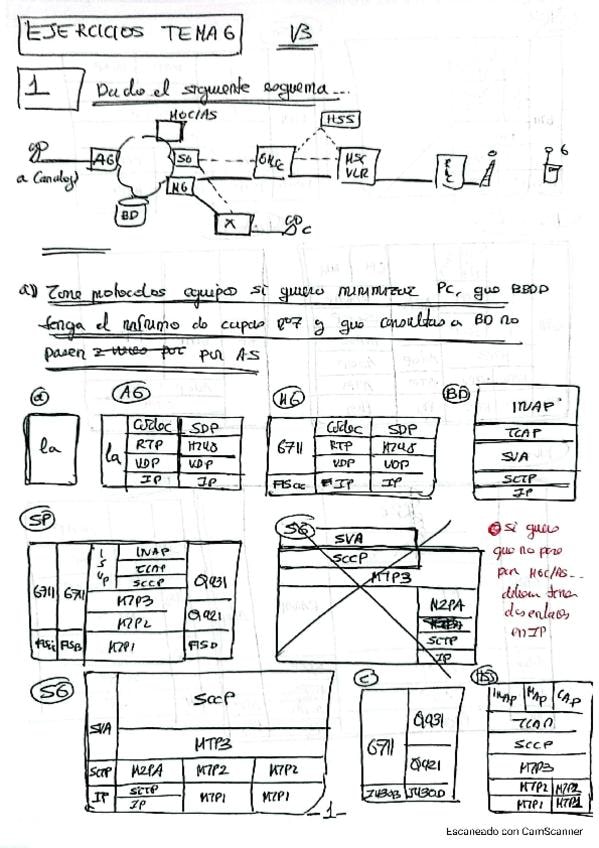 EJERCICIOS TEMA 6 1/3
1 Dado el siguiente esquema...
MGC/AS
HSS
AG SG GMSC MSC
VLR
a (analog) MG
BD X C
B
a) Zone protocolos equipos si quiero minimizar PC, que BBDD
tenga el mínimo de capas nº7 y que consultas a BD no
pasen por AS
a AG MG BD
la
la Codec SDP
RTP H248
UDP UDP
IP IP
G711 Codec SDP
RTP H248
UDP UDP
IP IP
INAP
TCAP
SUA
SCTP
IP
SP
G711 G711 ISUP INAP
TCAP
SCCP
MTP3
MTP2
MTP1
Q931
Q921
SG
SUA
SCCP
MTP3
M2PA
SCTP
IP
si quiero
que no pase
por MGC/AS...
enlaces
en IP
SG
SUA SCCP
MTP3
SCTP M2PA MTP2 MTP2
IP SCTP MTP1 MTP1
IP
C
G711 Q931
Q921
I430B I430D
INAP MAP CAP
TCAP
SCCP
MTP3
MTP2 MTP2
MTP1 MTP1
-1-
Escaneado con CamScanner